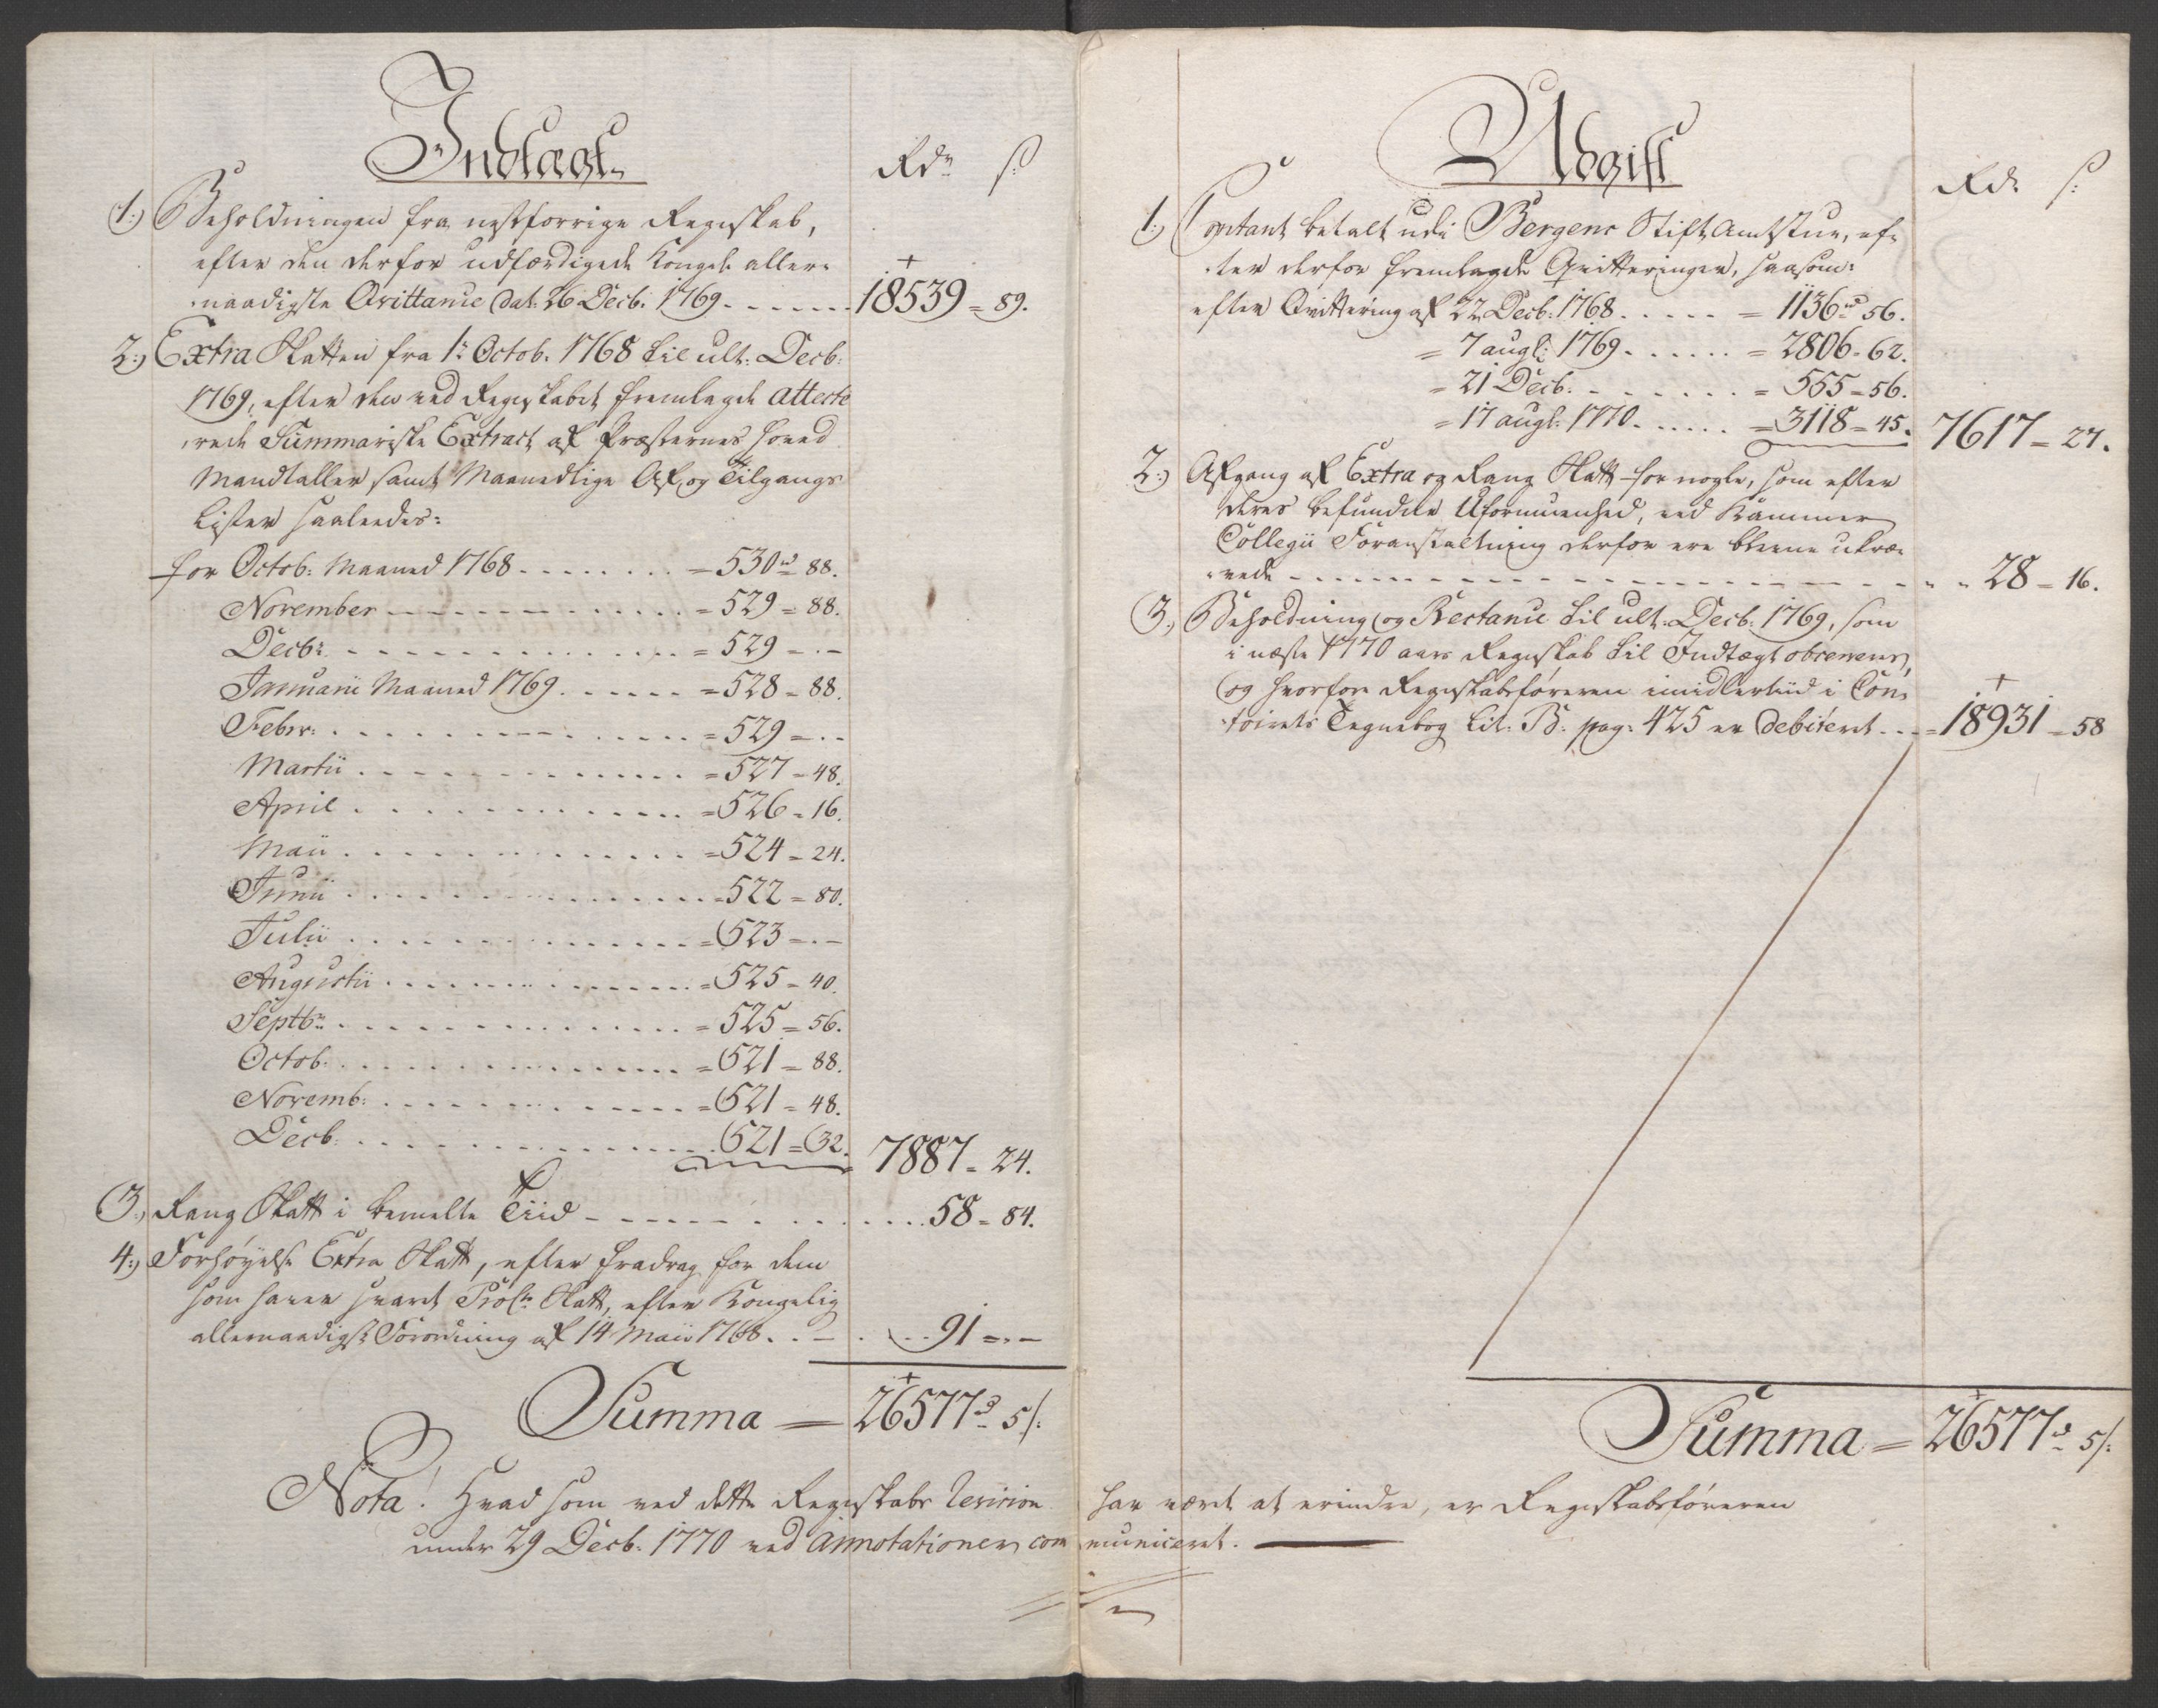 Indtægt
Rdr ß
1.) Beholdningen fra nestforrige Regnskab,
efter den derfor udfærdigede Kongel. aller-
naadigste Qvittance dat. 26 Decb. 1769 - - - 18539 = 89.
2.) Extra Skatten fra 1: Octob. 1768 til ult. Decb.
1769, efter den ved Regnskabet fremlagde atteste
rede Summariske Extract af Præsternes Hoved
Mandtaller samt Maanedlige Af og Tilgangs
Lister saaledes:
for Octob: Maaned 1768 . . . = 530 rd 88.
November - - - = 529 = 88.
Decbr. - - - = 529 = . -
Januarii Maaned 1769 . . . = 528 = 88.
Febr: . . . = 529 = . -
Martii . . . = 527 = 48.
April . . . = 526 = 16.
Maii . . . = 524 = 24.
Junii . . . = 522 = 80.
Julii . . . = 523 = . -
Augustii . . . = 525 = 40.
Septbr . . . = 525 = 56.
Octob. . . . = 521 = 88.
Novemb: . . . = 521 = 48.
Decb. . . . 521 = 32. 7887 = 24.
3.) Rang Skatt i bemelte Tiid - - - 58 = 84.
4.) Forhøyelse Extra Skatt, efter fradrag for dem
som haver svaret Skatt, efter Kongelig
allernaadigst Forordning af 14 Maii 1768. . - . 91 = . -
Summa = 26577 d 5 ß.
Udgift
Rdr ß
1.) Contant betalt udi Bergens Stift Amtstue, ef-
ter derfor fremlagde Qvitteringer, saasom:
efter Qvittering af 22 Decb. 1768 . . . = 1136 rd 56.
= 7 augl: 1769 . . . = 2806 = 62.
= 21 Decb. . . . = 555 = 56.
= 17 augl. 1770 . . . = 3118 = 45. 7617 = 27.
2.) Afgang af Extra og Rang Skatt for nogle, som efter
deres befundne Uformuenhed, ved Kammer
Collegii Foranstaltning derfor ere blevne ukræ-
vede - - - 28 = 16.
3.) Beholdning og Restance til ult. Decb. 1769, som
i næste 1770 aars Regnskab til Indtægt observeres,
og hvorfore Regnskabsføreren imidlertiid i Con-
toirets Tegnebog Lit. B. pag: 425 er debiteret . . - = 18931 = 58
Summa = 26577 d 5 ß.
Nota! Hvad som ved dette Regnskabs Revision har været at erindre, er Regnskabsføreren
under 29 Decb. 1770 ved Annotationer communiceret.